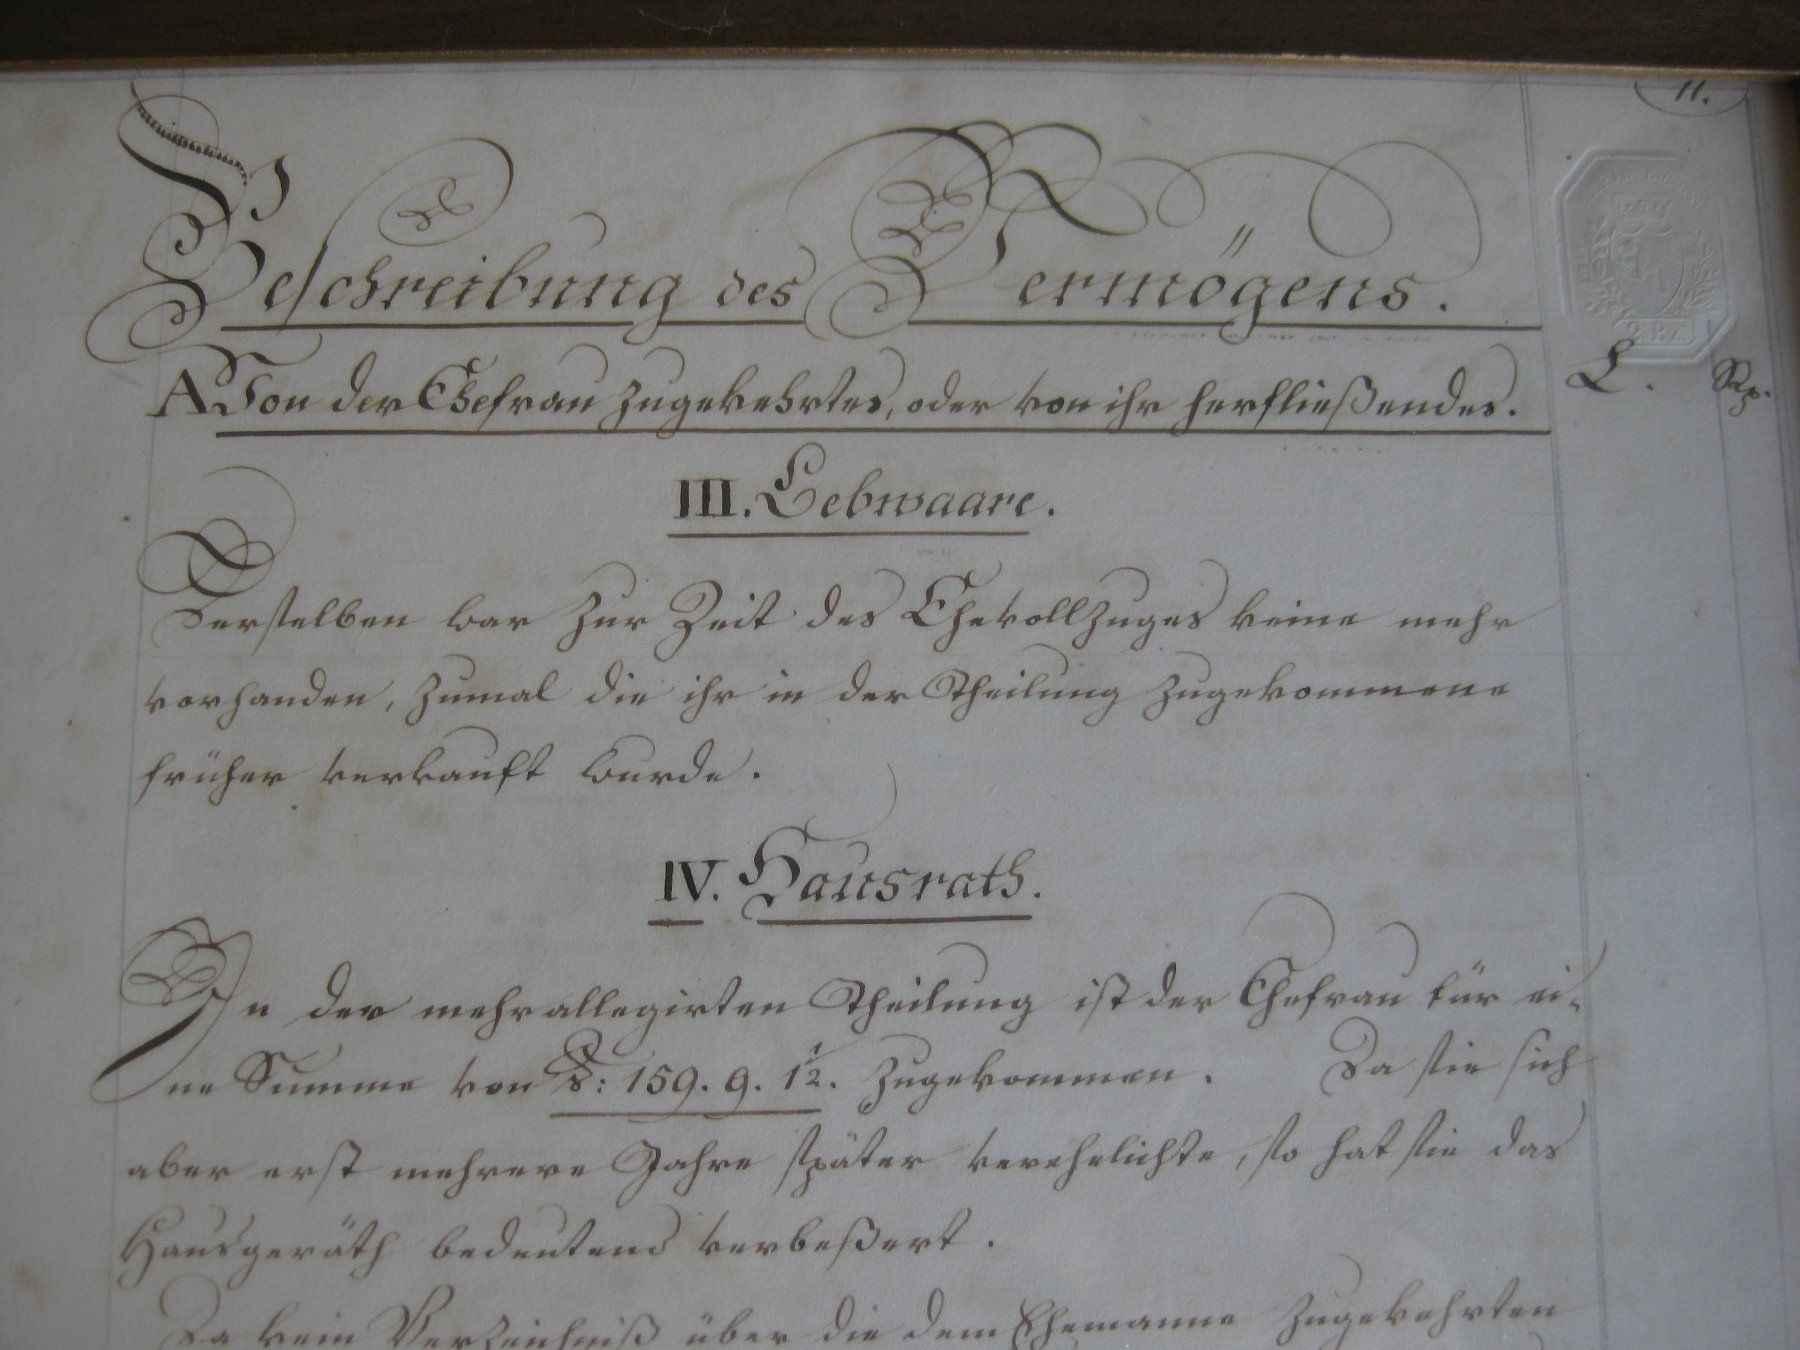 11.
Beschreibung des Vermögens.
A Von der Ehefrau zugekehrtes, oder von ihr herfließendes.
L. Rp.
III. Lebwaare.
Derselben war zur Zeit des Ehevollzuges keine mehr
vorhanden, zumal die ihr in der Theilung zugekommene
früher verkauft wurde.
IV. Hausrath.
In der mehrallegirten Theilung ist der Ehefrau für ei-
ne Summe von 159. 9. 1½. zugekommen. Da sie sich
aber erst mehrere Jahre später verehelichte, so hat sie das
Hausgeräth bedeutend verbeßert.
Da kein Verzeichniß über die dem Ehemanne zugekehrten
2 Bz.